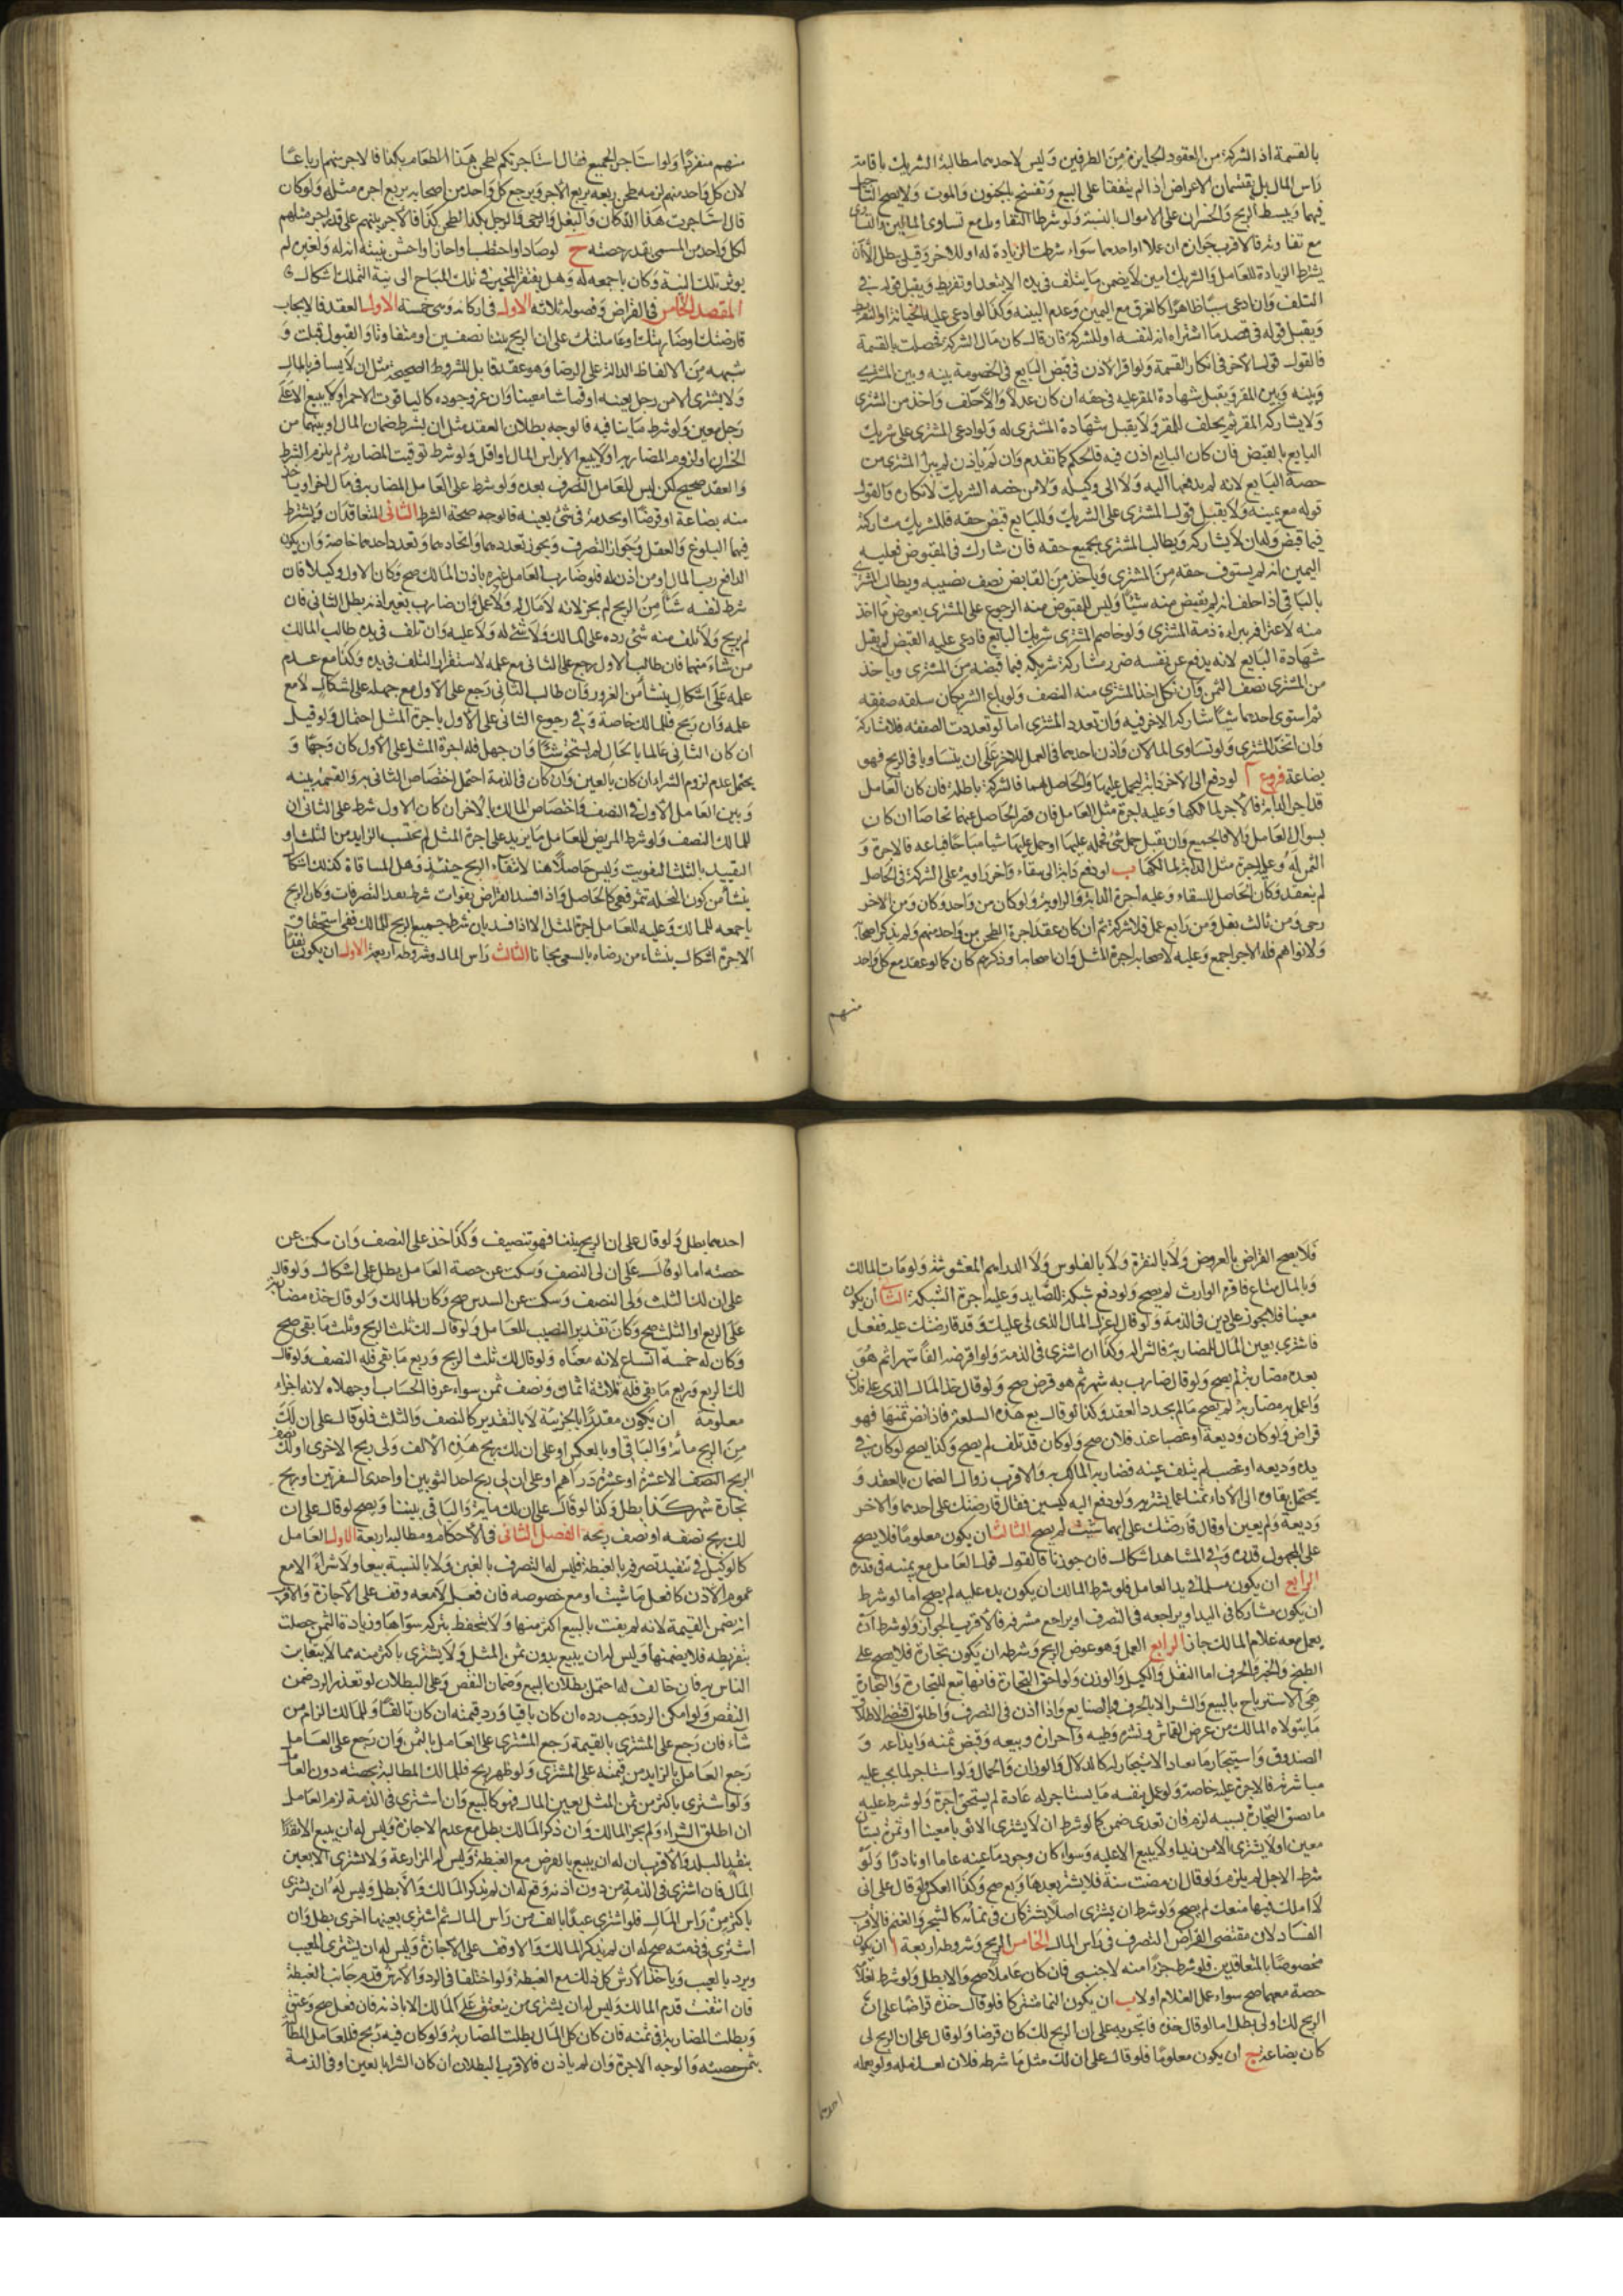 بالقسمة اذ الشركة من العقود الجايزة من الطرفين وليس لاحدهما مطالبة الشريك باقامة
راس المال بل يقتسمان الاعراض اذا لم يتفقا على البيع وتفسخ بالجنون والموت ولا يصح التاجيل
فيها ويبسط الربح والخسران على الاموال بالنسبة ولو شرطا التفاوت مع تساوى المالين والتساوى
مع تفاوته فالاقرب جوازه ان عملا او احدهما سواء شرطت الزيادة له او للاخر وقيل يبطل الا ان
يشترط الزيادة للعامل والشريك امين لا يضمن ما يتلف فى يده الا بتعد او تفريط ويقبل قوله فى
التلف وان ادعى سببا ظاهرا كالغرق مع اليمين وعدم البينه وكذا لو ادعى عليه الخيانة او التفريط
ويقبل قوله فى قصد ما اشتراه انه لنفسه او للشركة فان قال كان مال الشركة فخلصت بالقسمة
فالقول قول الاخر فى انكار القسمة ولو اقر الاذن فى قبض البايع فى الخصومة بينه وبين المشترى
وبينه وبين المقر ويقبل شهادة المقر عليه فى حقه ان كان عدلا والا حلف واخذ من المشترى
ولا يشاركه المقر ثم يحلف للمقر ولا يقبل شهادة المشترى له ولو ادعى المشترى على شريك
البايع بالقبض فان كان البايع اذن فيه فالحكم كما تقدم وان لم ياذن لم يبرأ المشترى من
حصة البايع لانه لم يدفعها اليه ولا الى وكيله ولا من حصه الشريك لانكاره والقول
قوله مع يمينه ولا يقبل قول المشترى على الشريك وللبايع قبض حقه فللشريك مشاركته
فيما قبض وله ان لا يشاركه ويطالب المشترى بجميع حقه فان شارك فى المقبوض فعليه
اليمين انه لم يستوف حقه من المشترى وياخذ من القابض نصف نصيبه ويطالب المشترى
بالباقى اذا حلف انه لم يقبض منه شيئا وليس للمقبوض منه الرجوع على المشترى بعوض ما اخذ
منه لاعترافه ببراءة ذمة المشترى ولو خاصم المشترى شريك البايع فادعى عليه القبض لم يقبل
شهادة البايع لانه يدفع عن نفسه ضرر مشاركة شريكه فيما قبضه من المشترى وياخذ
من المشترى نصف الثمن وان نكل اخذ المشترى منه النصف ولو باع الشريكان سلعة صفقه
ثم استوفى احدهما شيئا شاركه الاخر فيه وان تعدد المشترى اما لو تعددت الصفقه فلا شاركة
وان اتحد المشترى ولو تساوى المالان واذن احدهما فى العمل للاخر على ان يتساويا فى الربح فهو
بضاعة فروع آ لو دفع الى الاخر دابة ليحمل عليها والحاصل لهما فالشركة باطلة فان كان العامل
قد اجر الدابة فالاجر لمالكها وعليه اجرة مثل العامل فان قصر الحاصل عنهما تحاصا ان كان
بسوال العامل والا فالجميع وان تقبل حمل شئ فحمله عليها او حمل عليها شيئا مباحا فباعه فالاجرة و
الثمن له وعليه اجرة مثل الدابة لمالكها ب لو دفع دابة الى سقاء واخر راوية على الشركة فى الحاصل
لم ينعقد وكان الحاصل للسقاء وعليه اجرة الدابة والراوية ولو كان من واحد دكان ومن الاخر
رحى ومن ثالث بغل ومن رابع عمل فلا شركة ثم ان كان عقد اجرة الطحن من واحد منهم ولم يذكر اصحابه
ولا نواهم فله الاجر اجمع وعليه لاصحابه اجرة المثل وان نوى اصحابه او ذكرهم كان كما لو عقد مع كل واحد
منهم
منهم منفردا ولو استاجر الجميع فقال استاجرتكم لطحن هذا الطعام بكذا فالاجر بينهم ارباعا
لان كل واحد منهم لزمه طحن ربعه بربع الاجر ويرجع كل واحد من اصحابه بربع اجره مثله ولو كان
قال استاجرت هذا الدكان والبغل والرحى والرجل بكذا لطحن كذا فالاجر بينهم على قدر اجر مثلهم
لكل واحد من المسمى بقدر حصته ح لو صاد او احتطب او احتش او حاز بنية انه له ولغيره لم
يوثر تلك النية وكان باجمعه له وهل يفتقر المحيز فى تلك المباح الى نية التملك اشكال
المقصد الخامس فى القراض وفصوله ثلاثه الاول فى اركانه وهى خمسة الاول العقد فالايجاب
قارضتك او ضاربتك او عاملتك على ان الربح بيننا نصفين او متفاوتا والقبول قبلت و
شبهه من الالفاظ الدالة على الرضا وهو عقد قابل للشروط الصحيحة مثل ان لا يسافر بالمال
ولا يشترى الا من رجل بعينه او قماشا معينا وان عز وجوده كالياقوت الاحمر او لا يبيع الا على
رجل معين ولو شرط ما ينافيه فالوجه بطلان العقد مثل ان يشترط ضمان المال او بينهما من
الخسران او لزوم المضاربة او لا يبيع الا براس المال او اقل ولو شرط توقيت المضاربة لم يلزم الشرط
والعقد صحيح لكن ليس للعامل التصرف بعده ولو شرط على العامل المضاربة فى مال اخر او ياخذ
منه بضاعة او قرضا او يخدمه فى شئ بعينه فالوجه صحة الشرط الثانى المتعاقدان ويشترط
فيهما البلوغ والعقل وجواز التصرف ويجوز تعددهما واتحادهما وتعدد احدهما خاصة وان يكون
الدافع رب المال او من اذن له فلو ضارب العامل غيره باذن المالك صح وكان الاول وكيلا فان
شرط لنفسه شيئا من الربح لم يجز لانه لا مال له ولا عمل وان ضارب بغير اذنه بطل الثانى فان
لم يربح ولا تلف منه شئ رده على المالك ولا شئ له ولا عليه وان تلف فى يده طالب المالك
من شاء منهما فان طالب الاول رجع على الثانى مع علمه لاستقرار التلف فى يده وكذا مع عدم
علمه على اشكال ينشأ من الغرور وان طالب الثانى رجع على الاول مع جهله على اشكال لا مع
علمه وان ربح فللمالك خاصة وفى رجوع الثانى على الاول باجرة المثل احتمال ولو قيل
ان كان الثانى عالما بالحال لم يستحق شيئا وان جهل فله اجرة المثل على الاول كان وجها و
يحتمل عدم لزوم الشراء ان كان بالعين وان كان فى الذمة احتمل اختصاص الثانى به والقسمة بينه
وبين العامل الاول فى النصف واختصاص المالك بالاخر ان كان الاول شرط على الثانى ان
للمالك النصف ولو شرط المريض للعامل ما يزيد على اجرة المثل لم يحتسب الزايد من الثلث او
التقييد بالثلث التفويت وليس حاصلا هنا لانتفاء الربح حينئذ وهل المساقاة كذلك اشكال
ينشأ من كون النخله تثمر فهى كالحاصل واذا افسد القراض بفوات شرط بعد التصرفات وكان الربح
باجمعه للمالك وعليه للعامل اجرة المثل الا اذا فسد بان شرط جميع الربح للمالك ففى استحقاق
الاجرة اشكال ينشاء من رضاه بالسعى مجانا الثالث راس المال وشروطه اربعة الاول ان يكون نقدا
فلا يصح القراض بالعروض ولا بالنقرة ولا بالفلوس ولا الدراهم المغشوشة ولو مات المالك
وبالمال متاع فاقره الوارث لم يصح ولو دفع شبكة للصايد وعليه اجرة الشبكة الثانى ان يكون
معينا فلا يجوز على دين فى الذمة ولو قال اعزل المال الذى لى عليك وقد قارضتك عليه ففعل
فاشترى بعين المال للمضاربة فالشراء له وكذا ان اشترى فى الذمة ولو اقرضه الفا شهرا ثم هو
بعده مضاربة لم يصح ولو قال ضارب به شهرا ثم هو قرض صح ولو قال خذ المال الذى على فلان
واعمل به مضاربة لم يصح ما لم يجدد العقد وكذا لو قال بع هذه السلعة فاذا نض ثمنها فهو
قراض ولو كان وديعة او غصبا عند فلان صح ولو كان قد تلف لم يصح وكذا يصح لو كان فى
يده وديعه او غصب لم يتلف عينه فضاربه المالك به والاقرب زوال الضمان بالعقد و
يحتمل بقاوه الى الاداء ثمنا لما يشتريه ولو دفع اليه كيسين فقال قارضتك على احدهما والاخر
وديعة ولم يعين او قال قارضتك على ايهما شئت لم يصح الثالث ان يكون معلوما فلا يصح
على المجهول قدره وفى المشاهد اشكال فان جوزنا فالقول قول العامل مع يمينه فى قدره
الرابع ان يكون مسلما فى يد العامل فلو شرط المالك ان يكون يده عليه لم يصح اما لو شرط
ان يكون مشاركا فى اليد او يراجعه فى التصرف او يراجع مشرفه فالاقرب الجواز ولو شرط ان
يعمل معه غلام المالك جاز الرابع العمل وهو عوض الربح وشرطه ان يكون تجارة فلا يصح على
الطبخ والخبز والحرف اما النقل والكيل والوزن ولواحق التجارة فانها تبع للتجارة والتجارة
هى الاسترباح بالبيع والشراء لا بالحرف والصنايع واذا اذن فى التصرف واطلق اقتضى الاطلاق
ما يتولاه المالك من عرض القماش ونشره وطيه واحرازه وبيعه وقبض ثمنه وايداعه و
الصندوق واستيجار ما يعتاد الاستيجار له كالدلال والوزان والحمال ولو استاجر لما يجب عليه
مباشرته فالاجرة عليه خاصة ولو عمل بنفسه ما يستاجر له عادة لم يستحق اجرة ولو شرط عليه
ما يصق التجارة بسببه لزم فان تعدى ضمن كما لو شرط ان لا يشترى الا ثوبا معينا او ثمرة بستان
معين او لا يشترى الا من زيد او لا يبيع الا عليه وسواء كان وجود ما عينه عاما او نادرا ولو
شرط الاجل لم يلزم ولو قال ان مضت سنة فلا يشتر بعدها وبع صح وكذا العكس لو قال على انى
لا املك فيها منعك لم يصح ولو شرط ان يشترى اصلا يشتركان فى نمائه كالشجر والغنم فالاقرب
الفساد لان مقتضى القراض التصرف فى راس المال الخامس الربح وشروطه اربعة ا ان يكون
مخصوصا بالمتعاقدين فلو شرط جزءا منه لاجنبى فان كان عاملا صح والا بطل ولو شرط لغلامه
حصة معهما صح سواء عمل الغلام او لا ب ان يكون النماء مشتركا فلو قال خذه قراضا على ان
الربح لك او لى بطل اما لو قال خذه فاتجر به على ان الربح لك كان قرضا ولو قال على ان الربح لى
كان بضاعة ج ان يكون معلوما فلو قال على ان لك مثل ما شرطه فلان لعامله ولو يعلمه
احدهما
احدهما بطل ولو قال على ان الربح بيننا فهو تنصيف وكذا خذ على النصف وان سكت عن
حصته اما لو قال على ان لى النصف وسكت عن حصة العامل بطل على اشكال ولو قال
على ان لك الثلث ولى النصف وسكت عن السدس صح وكان للمالك ولو قال خذه مضاربة
على الربع او الثلث صح وكان تقدير النصيب للعامل ولو قال لك ثلث الربح وثلث ما بقى صح
وكان له خمسة اتساع لانه معناه ولو قال لك ثلث الربح وربع ما بقى فله النصف ولو قال
لك الربع وربع ما بقى فله ثلاثة اثمان ونصف ثمن سواء عرفا الحساب او جهلاه لانه اجزاء
معلومة ان يكون مقدرا بالجزئية لا بالتقدير كالنصف والثلث فلو قال على ان لك
من الربح مائة والباقى او بالعكس او على ان لك ربح هذه الالف ولى ربح الاخرى او لك نصف
الربح النصف الا عشرة او عشرة دراهم او على ان لى ربح احد الثوبين او احدى السفرتين او ربح
تجارة شهر كذا بطل وكذا لو قال على ان لك ماية والباقى بيننا ويصح لو قال على ان
لك ربح نصفه او نصف ربحه الفصل الثانى فى الاحكام ومطالبه اربعة الاول العامل
كالوكيل فى تنفيذ تصرفه بالغبطة فليس له التصرف بالغبن ولا بالنسية بيعا ولا شراء الا مع
عموم الاذن كافعل ما شئت او مع خصوصه فان فعل لا معه وقف على الاجازة والاقرب
انه يضمن القيمة لانه لم يفت بالبيع اكثر منها ولا يتحفظ بتركه سواها وزيادة الثمن حصلت
بتفريطه فلا يضمنها وليس له ان يبيع بدون ثمن المثل ولا يشترى باكثر منه مما لا يتغابن
الناس به فان خالف له احتمل بطلان البيع وضمان النقص وعلى البطلان لو تعذر الرد ضمن
النقص ولو امكن الرد وجب رده ان كان باقيا ورد قيمته ان كان تالفا وللمالك الزام من
شاء فان رجع على المشترى بالقيمة رجع المشترى على العامل بالثمن وان رجع على العامل
رجع العامل بالزايد من قيمته على المشترى ولو ظهر ربح فللمالك المطالبة بحصته دون العامل
ولو اشترى باكثر من ثمن المثل بعين المال فهو كالبيع وان اشترى فى الذمة لزم العامل
ان اطلق الشراء ولم يجز المالك وان ذكر المالك بطل مع عدم الاجازة وليس له ان يبيع الا نقدا
بنقد البلد والاقرب ان له ان يبيع بالعرض مع الغبطة وليس له المزارعة ولا يشترى الا بعين
المال فان اشترى فى الذمة من دون اذنه وقع له ان لم يذكر المالك والا بطل وليس له ان يشترى
باكثر من راس المال فلو اشترى عبدا بالف من راس المال ثم اشترى بعينها اخرى بطل وان
اشترى فى ذمته صح له ان لم يذكر المالك والا وقف على الاجازة وليس له ان يشترى المعيب
ويرد بالعيب وياخذ الارش كل ذلك مع الغبطة ولو اختلفا فى الرد والارش قدم جانب الغبطة
فان انتفت قدم المالك وليس له ان يشترى من ينعتق على المالك الا باذنه فان فعل صح وعتق
وبطلت المضاربة فى ثمنه فان كان كل المال بطلت المضاربة ولو كان فيه ربح فللعامل المطالبة
بثمن حصته والوجه الاجرة وان لم ياذن فالاقرب البطلان ان كان الشراء بالعين او فى الذمة